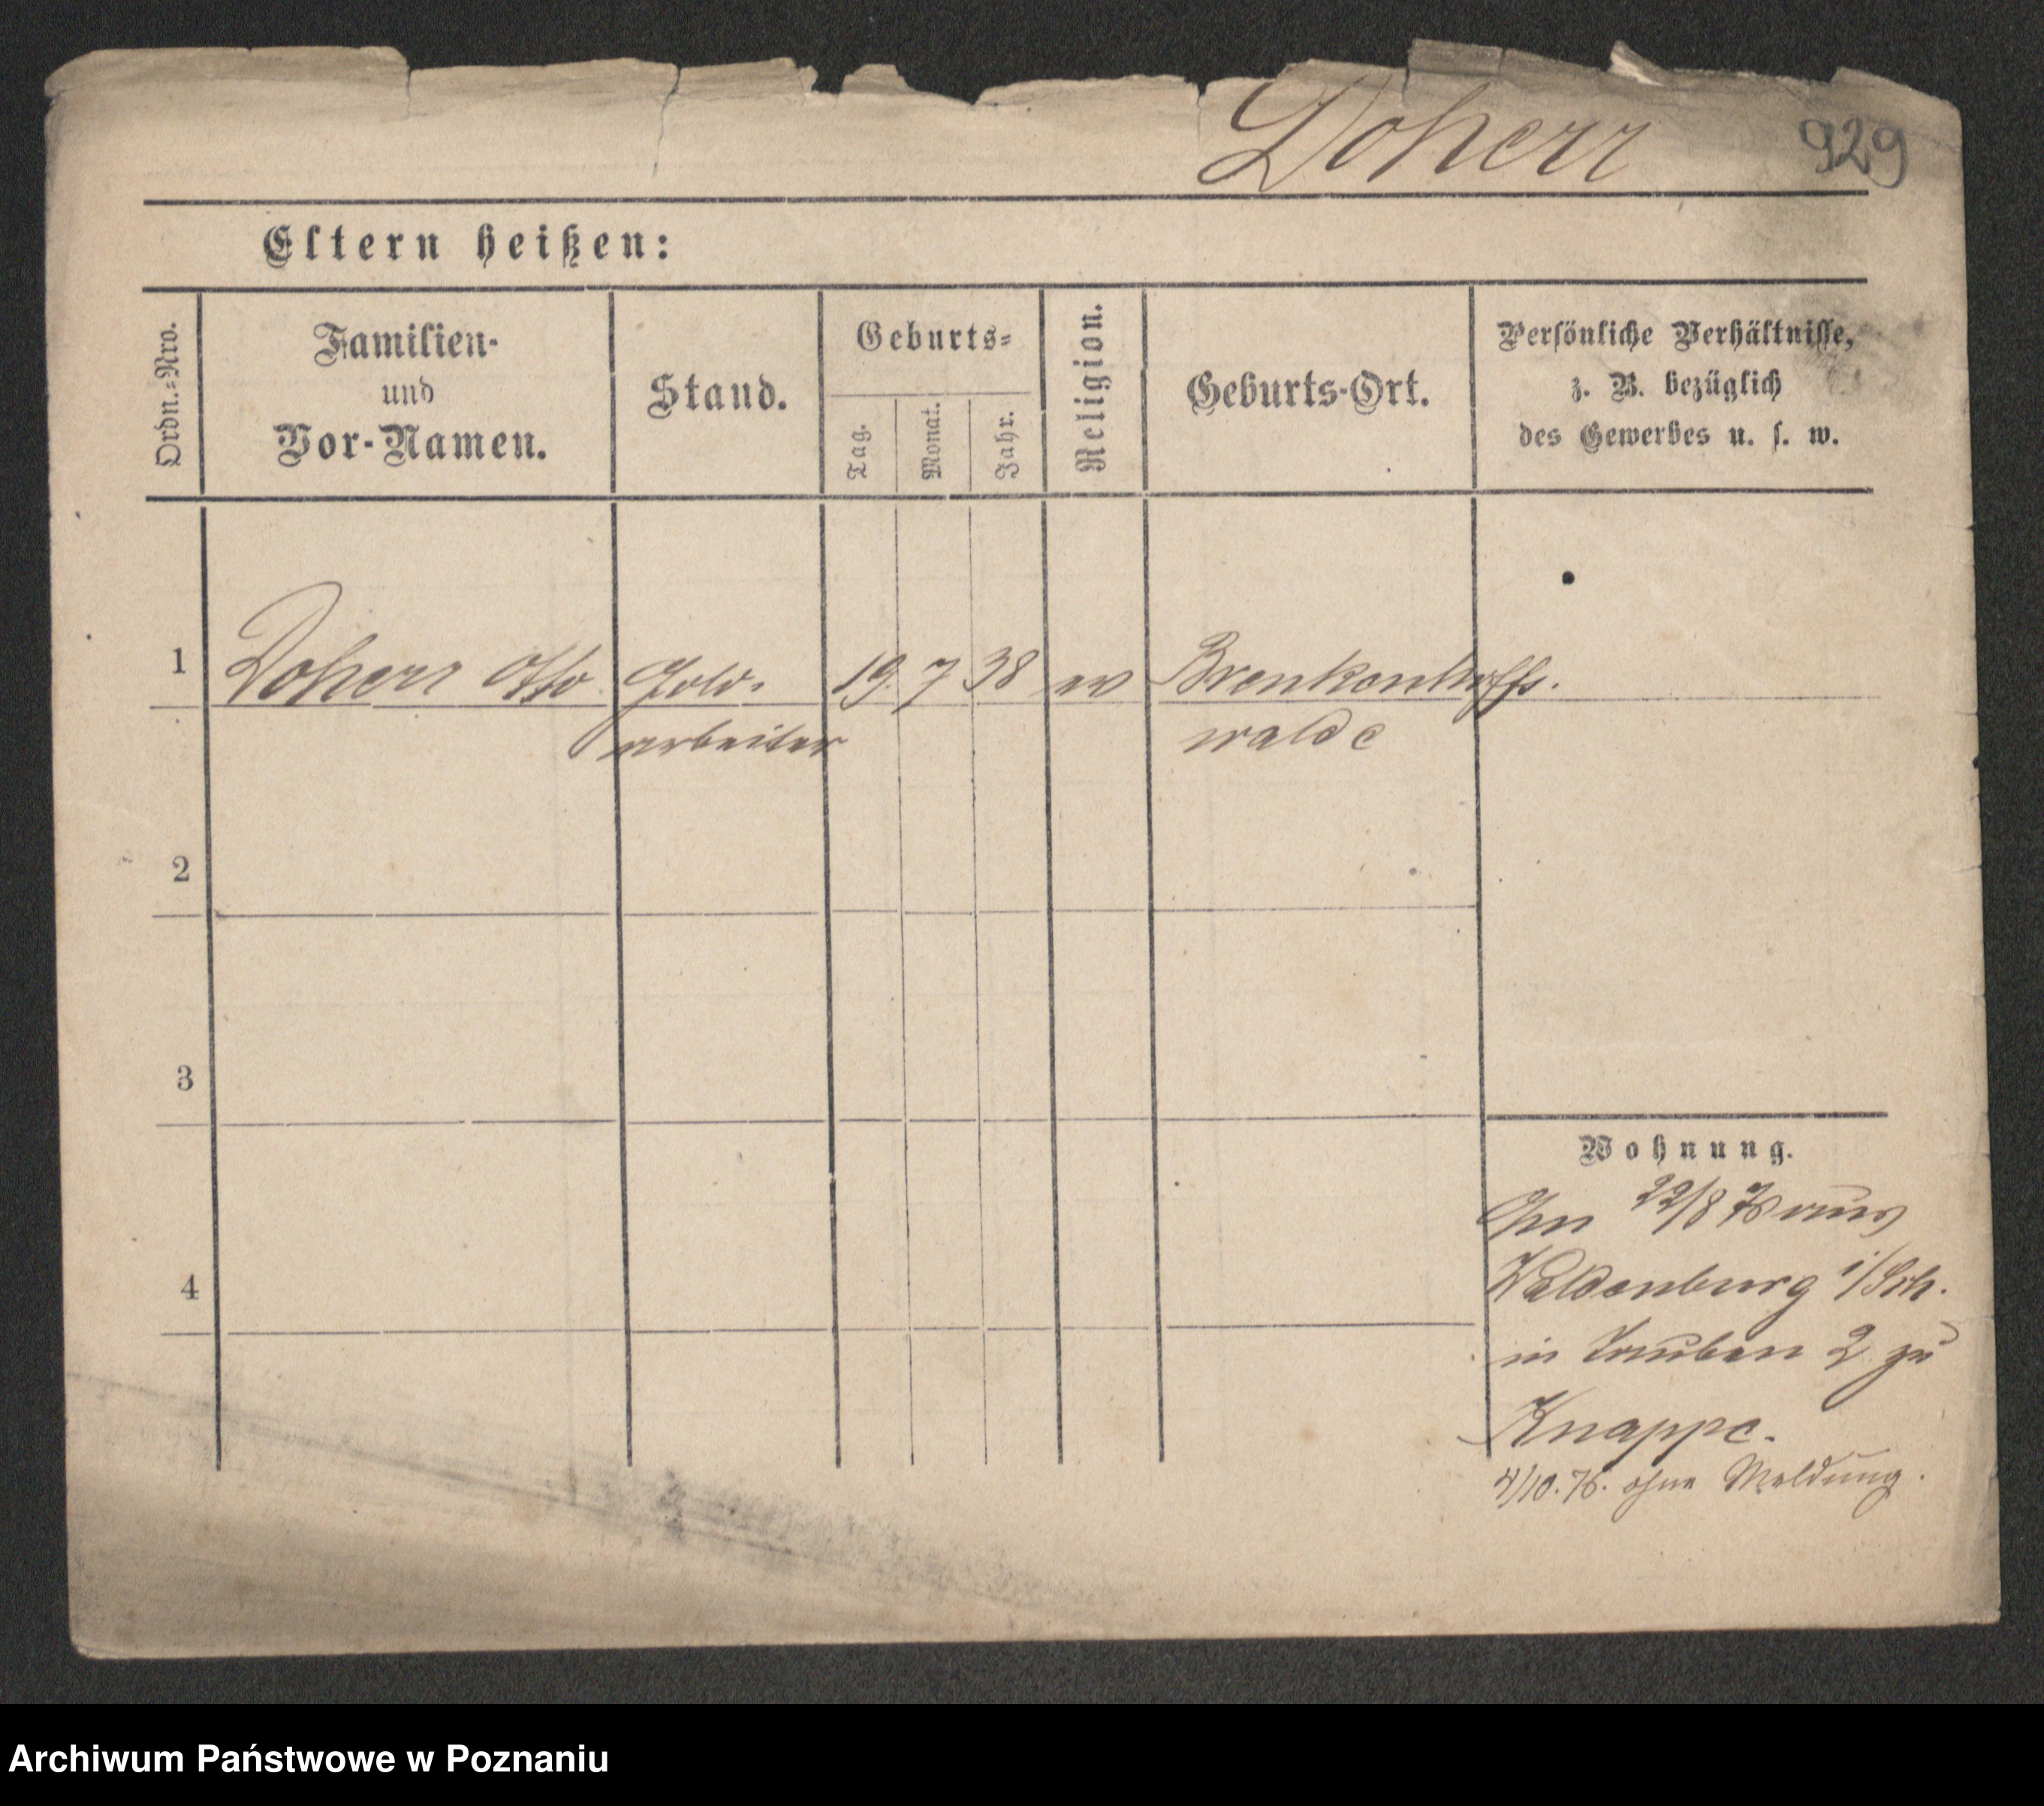 Doherr 929
Eltern heißen:
Ordn.-Nro.
Familien-
und
Vor-Namen.
Stand.
Geburts-
Tag.
Monat.
Jahr.
Religion.
Geburts-Ort.
Persönliche Verhältnisse,
z. B. bezüglich
des Gewerbes u. s. w.
1 Doherr Otto Gold- 19. 7 38 ev Brenkenhoffs-
arbeiter walde
2
3
4
Wohnung.
22/8 76 aus
Waldenburg i/Sch.
in Tauben 2 zu
Knappe.
4/10. 76. ohne Meldung.
Archiwum Państwowe w Poznaniu